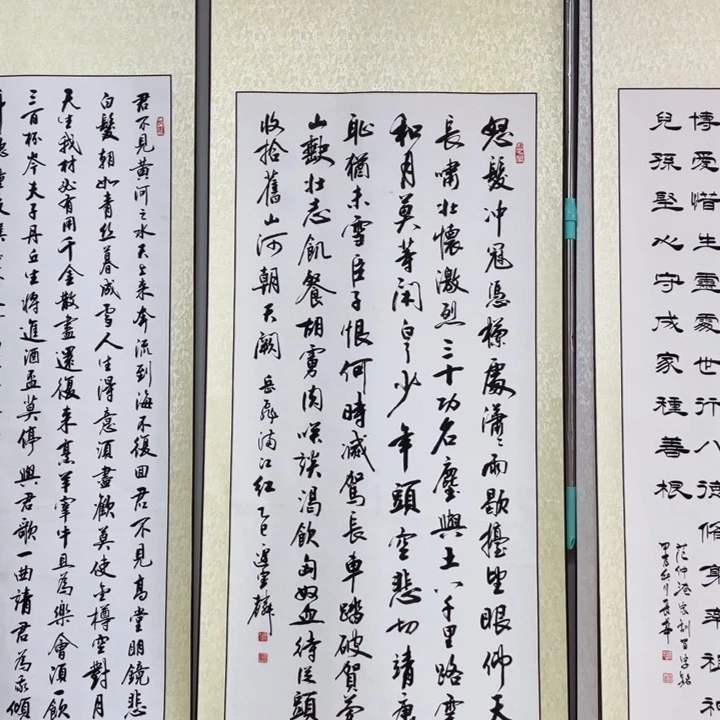 博愛惜生靈處世行八德脩身率祖神
兒孫堅心守成家種善根
范仲淹家訓百字銘
怒髮冲冠憑欄處瀟〻雨歇擡望眼仰天
長嘯壯懷激烈三十功名塵與土八千里路雲
和月莫等闲白了少年頭空悲切靖康
恥猶未雪臣子恨何時滅駕長車踏破賀蘭
山壯志飢餐胡虜肉笑談渴飲匈奴血待從頭
收拾舊山河朝天闕 岳飛滿江紅 乙巳
君不見黃河之水天上來奔流到海不復回君不見高堂明鏡悲
白髮朝如青絲暮成雪人生得意須盡歡莫使金樽空對月
天生我材必有用千金散盡還復来烹羊宰牛且為樂會須一飲
三百杯岑夫子丹丘生將進酒盃莫停與君歌一曲請君為我傾